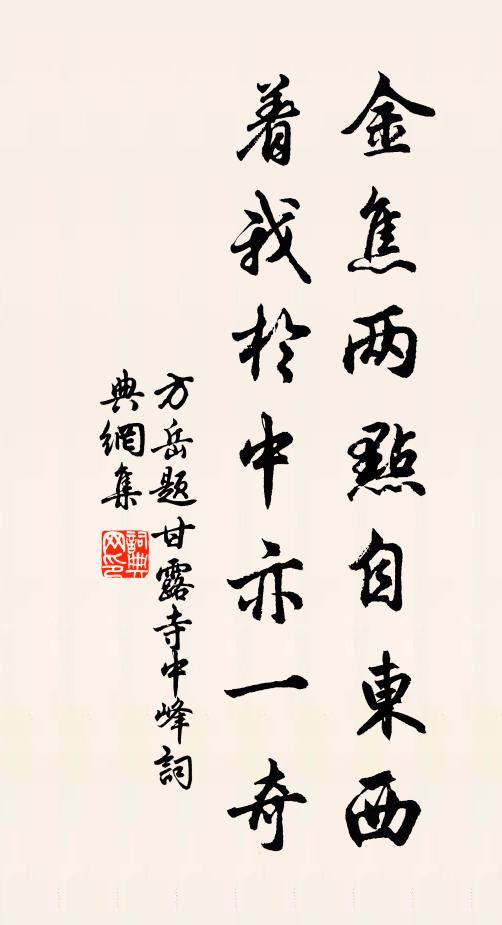 金焦两點自東西
着我於中亦一奇
方岳题甘露寺中峰詞
典網集
詞典网印